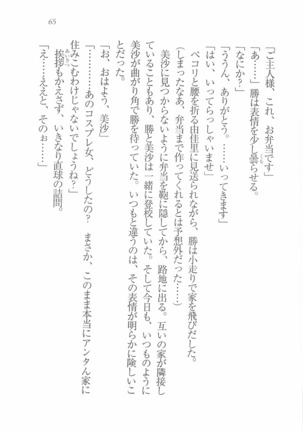 65
「ご主人様、これ、お弁当です」
「あ……」勝は表情を少し曇らせる。
「なにか？」
「ううん、ありがとう。……いってきます」
「はい、いってらっしゃいませ」
ペコリと頭を下げる由佳里に見送られながら、勝は小走りで家を飛びだした。
（しまったなあ、弁当まで作ってくれるとは予想外だった……）
美沙に見つからないように弁当を鞄に隠してから、路地に出る。互いの家が隣接し
ていることもあり、勝と美沙は一緒に登校していた。そして今日も、いつものように
美沙が曲がり角で勝を待っていた。いつもと違うのは、その表情が明らかに険しいこ
とだった。
「お、おはよう、美沙」
「………あのコスプレ女、どうしたの？　まさか、このまま本当にアンタん家に
住みこむわけじゃないでしょうね？」
挨拶もかえさず、いきなり直球の詰問。
「え……ええと、そのぉ……」